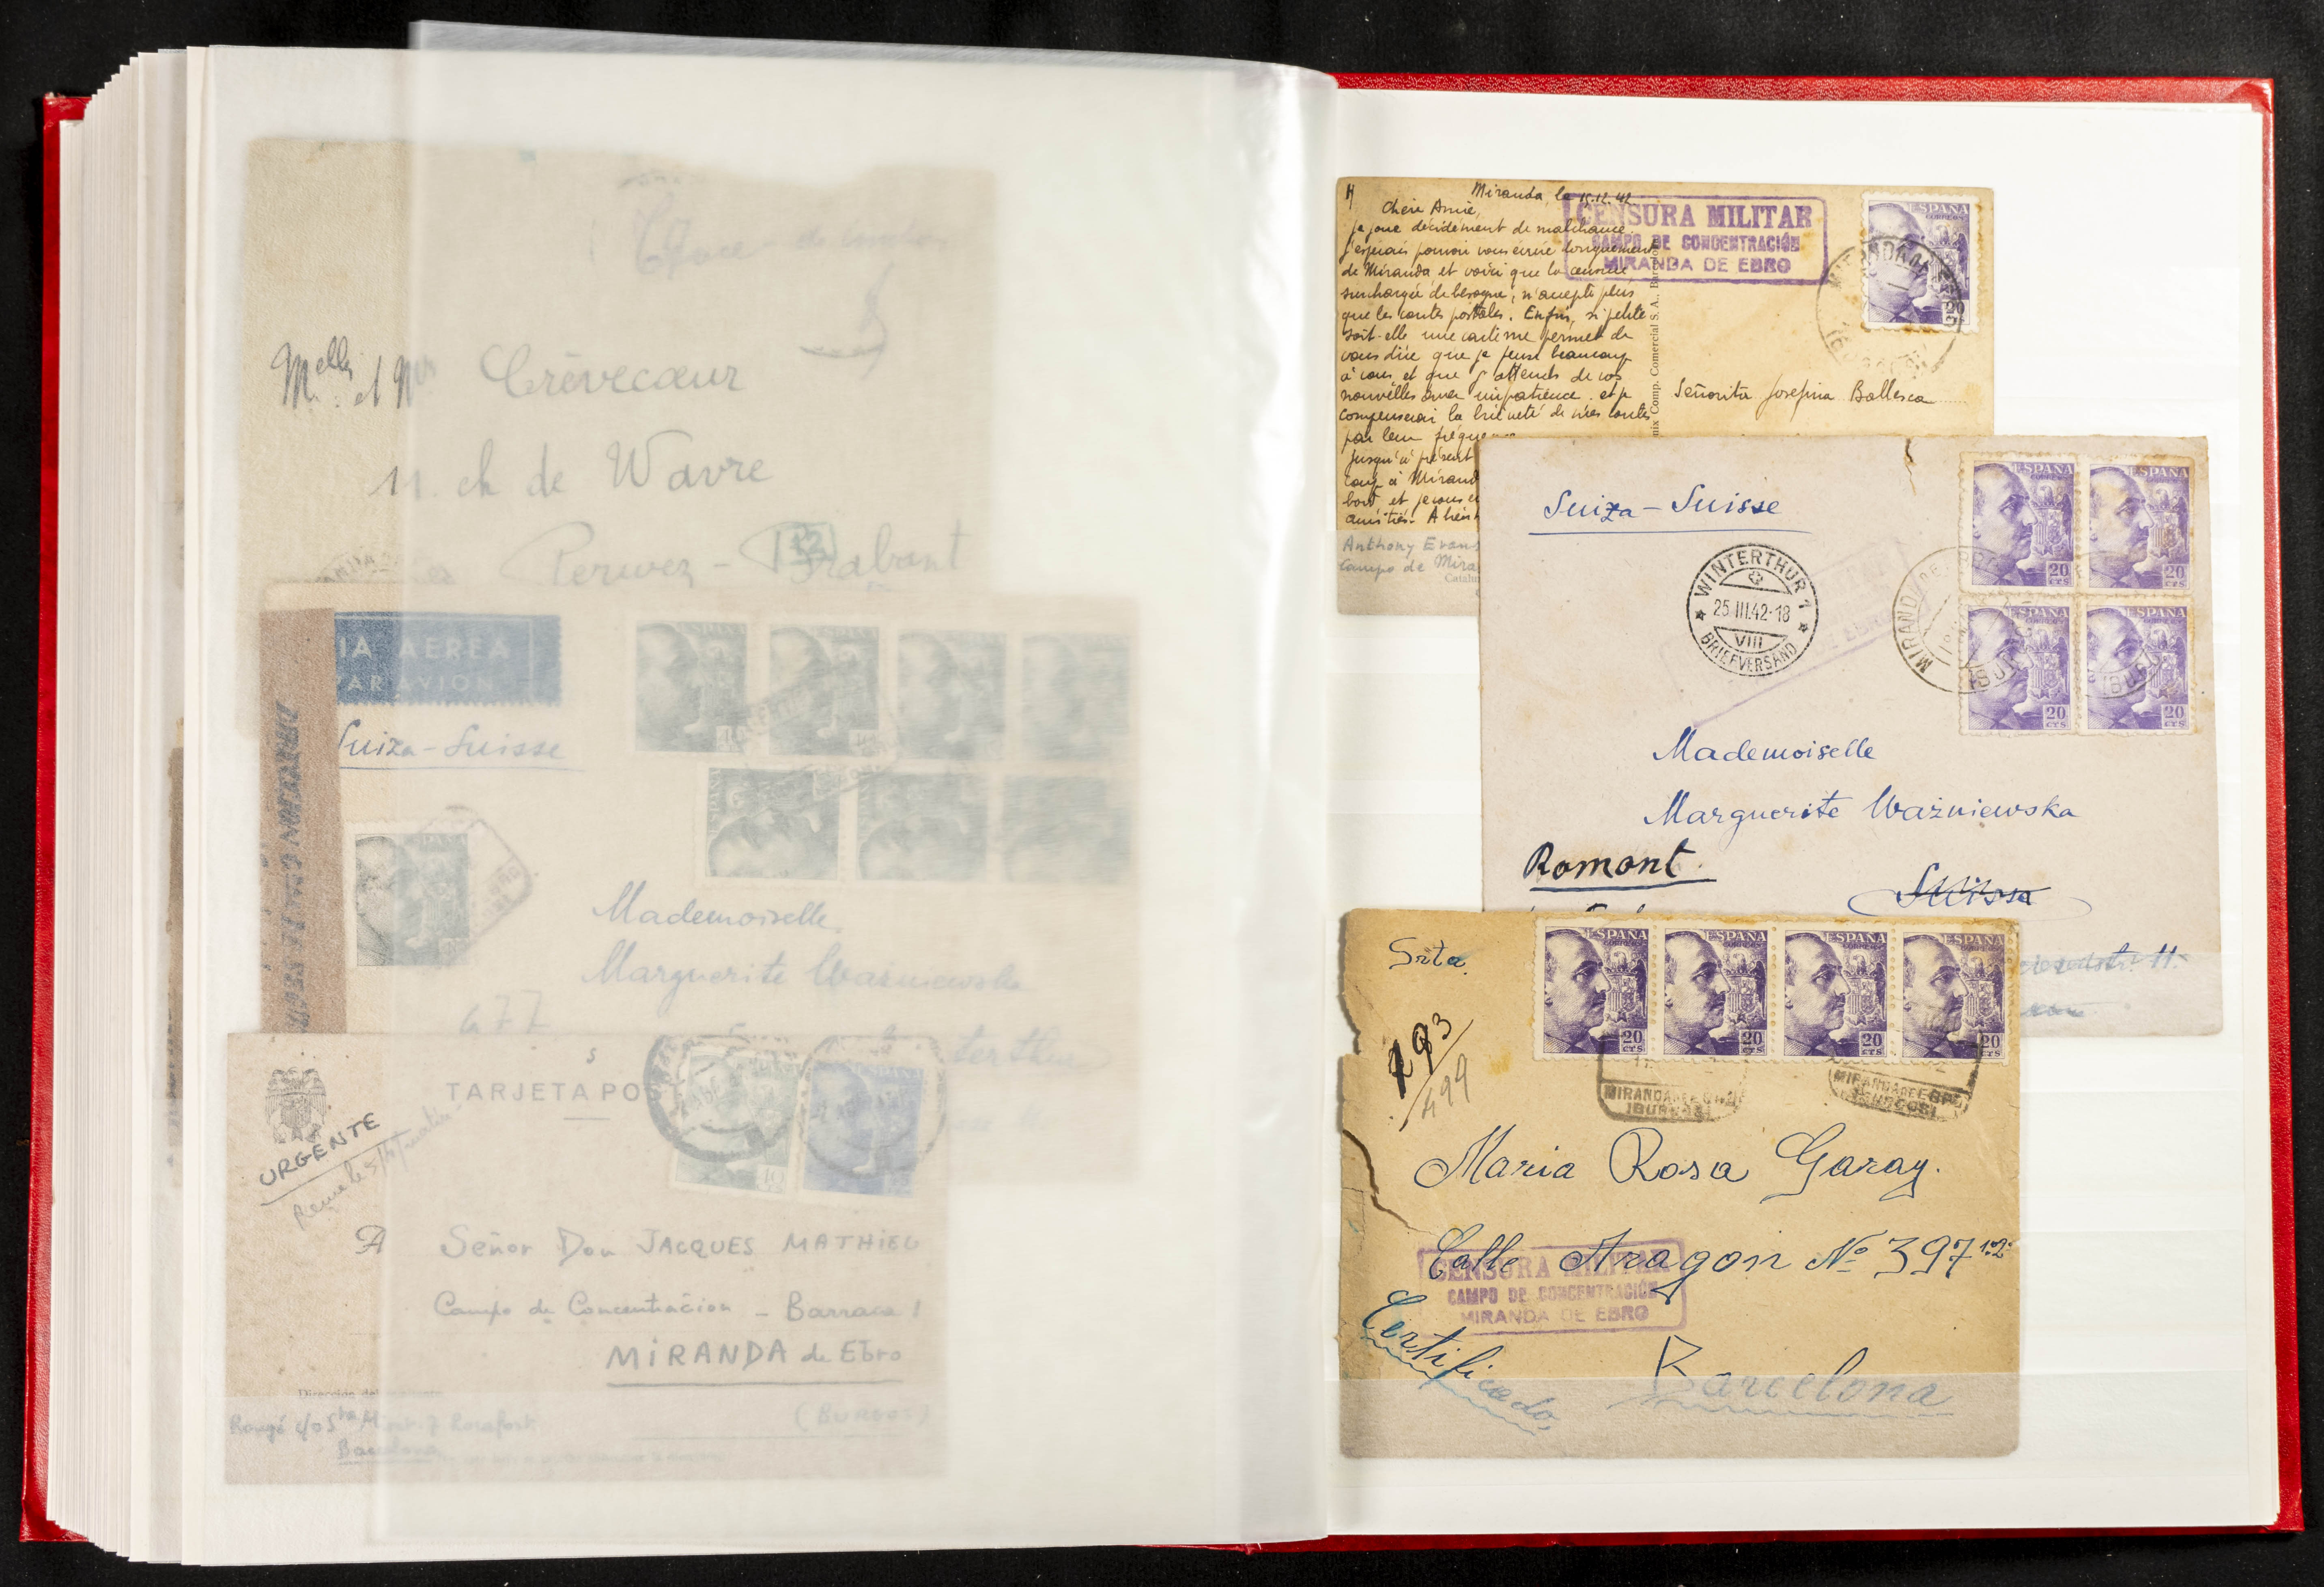 Melles et Mrs Crèvecœur
11. ch de Wavre
Perwez - Brabant
VIA AEREA
PAR AVION
Suiza - Suisse
Mademoiselle
Marguerite Ważniewska
677
TARJETA POS
URGENTE
A Señor Don JACQUES MATHIEU
Campo de Concentración - Barraca 1
MIRANDA de Ebro
(BURGOS)
Barcelona
Miranda, le 15.12.42
Chère Amie,
je joue décidément de malchance.
J'espérais pouvoir vous écrire longuement
de Miranda et voici que la censure
surchargée de besogne, n'accepte plus
que les cartes postales. Enfin, si petite
soit-elle une carte me permet de
vous dire que je pense beaucoup
à vous et que j'attends de vos
nouvelles avec impatience. et je
compenserai la brièveté de mes cartes
par leur
Jusqu'à présent
camp à Mirand
bout et je vous
amitiés. A bien
Anthony Evans
Campo de Mira
Comp. Comercial S.A., Barcelona
CENSURA MILITAR
CAMPO DE CONCENTRACIÓN
MIRANDA DE EBRO
ESPAÑA
CORREOS
20
Señorita Josefina Ballesca
Suiza - Suisse
WINTERTHUR 1
25.III.42-18
VIII
BRIEFVERSAND
ESPAÑA
ESPAÑA
20 CTS
20 CTS
ESPAÑA
ESPAÑA
20 CTS
20 CTS
MIRANDA DE EBRO
Mademoiselle
Marguerite Ważniewska
Romont.
Suisse
Srta.
ESPAÑA
ESPAÑA
ESPAÑA
ESPAÑA
20 CTS
20 CTS
20 CTS
20
293
499
MIRANDA DE EBRO
(BURGOS)
MIRANDA DE EBRO
(BURGOS)
Maria Rosa Garay.
Calle Aragon Nº 397 1º 2ª
CENSURA MILITAR
CAMPO DE CONCENTRACIÓN
MIRANDA DE EBRO
Certificado
Barcelona